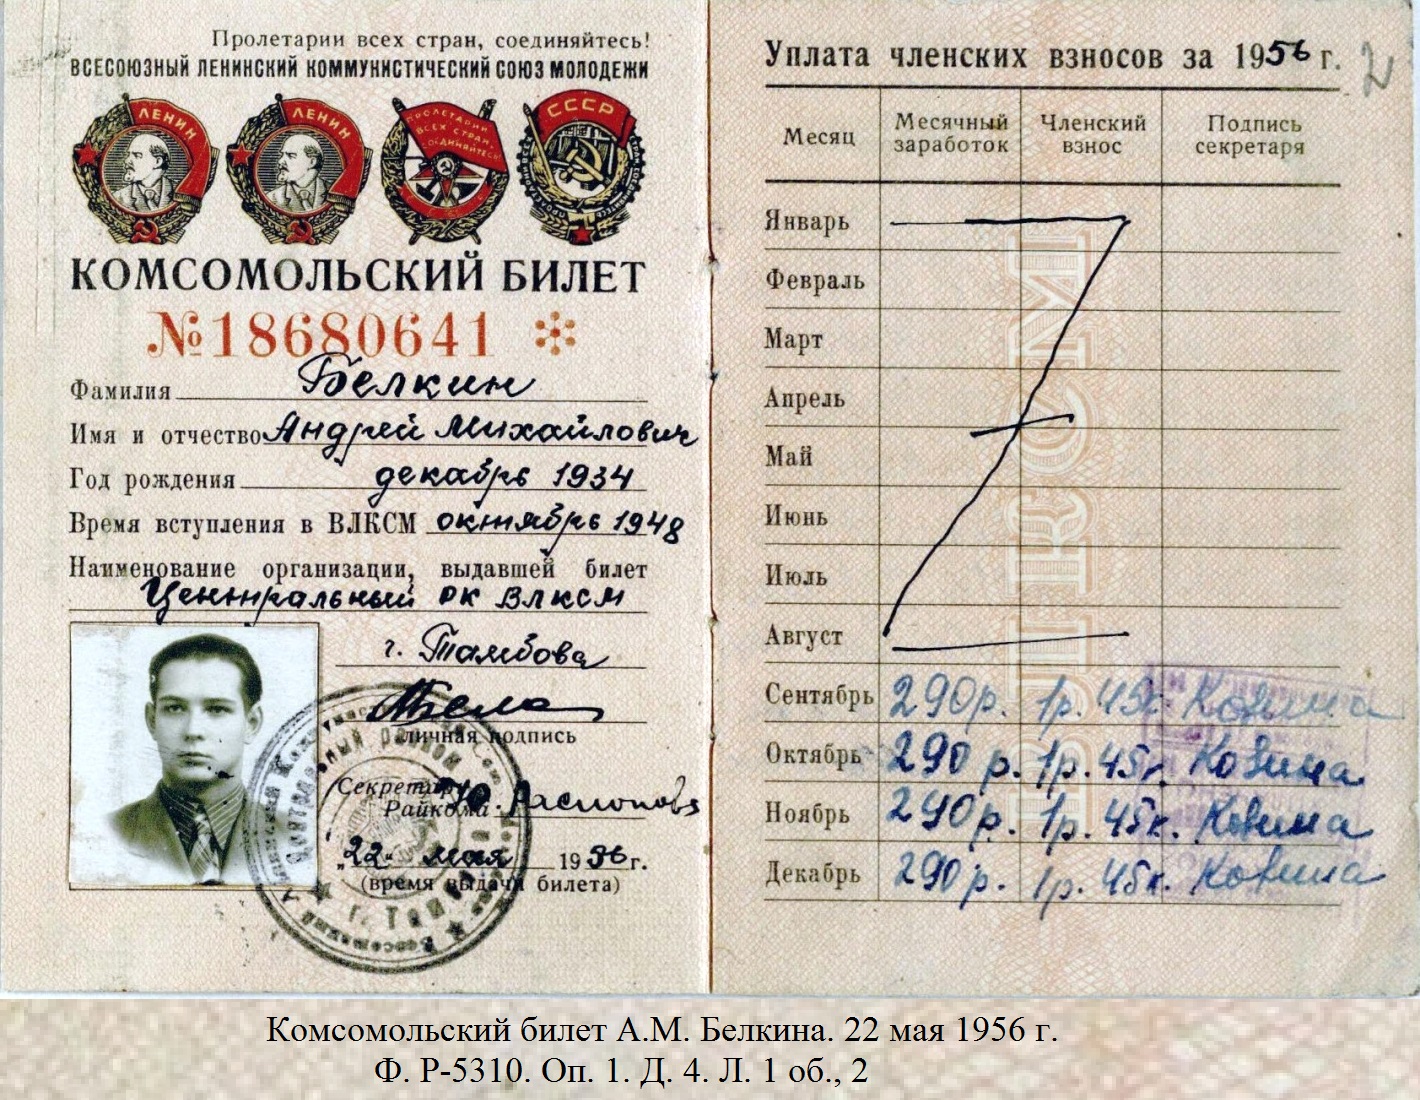 Пролетарии всех стран, соединяйтесь!
ВСЕСОЮЗНЫЙ ЛЕНИНСКИЙ КОММУНИСТИЧЕСКИЙ СОЮЗ МОЛОДЕЖИ
ЛЕНИН
ЛЕНИН
ПРОЛЕТАРИИ ВСЕХ СТРАН, СОЕДИНЯЙТЕСЬ!
СССР
КОМСОМОЛЬСКИЙ БИЛЕТ
№18680641
Фамилия Белкин
Имя и отчество Андрей Михайлович
Год рождения декабрь 1934
Время вступления в ВЛКСМ октябрь 1948
Наименование организации, выдавшей билет
Центральный РК ВЛКСМ
г. Тамбова
личная подпись
Секретарь
Райкома
„22" мая 1956 г.
(время выдачи билета)
Уплата членских взносов за 1956 г.
2
Месяц Месячный заработок Членский взнос Подпись секретаря
Январь
Февраль
Март
Апрель
Май
Июнь
Июль
Август
Сентябрь 290р. 1р. 45к. Ковина
Октябрь 290 р. 1р. 45к. Ковина
Ноябрь 290р. 1р. 45к. Ковина
Декабрь 290р. 1р. 45к. Ковина
ВЛКСМ
Комсомольский билет А.М. Белкина. 22 мая 1956 г.
Ф. Р-5310. Оп. 1. Д. 4. Л. 1 об., 2